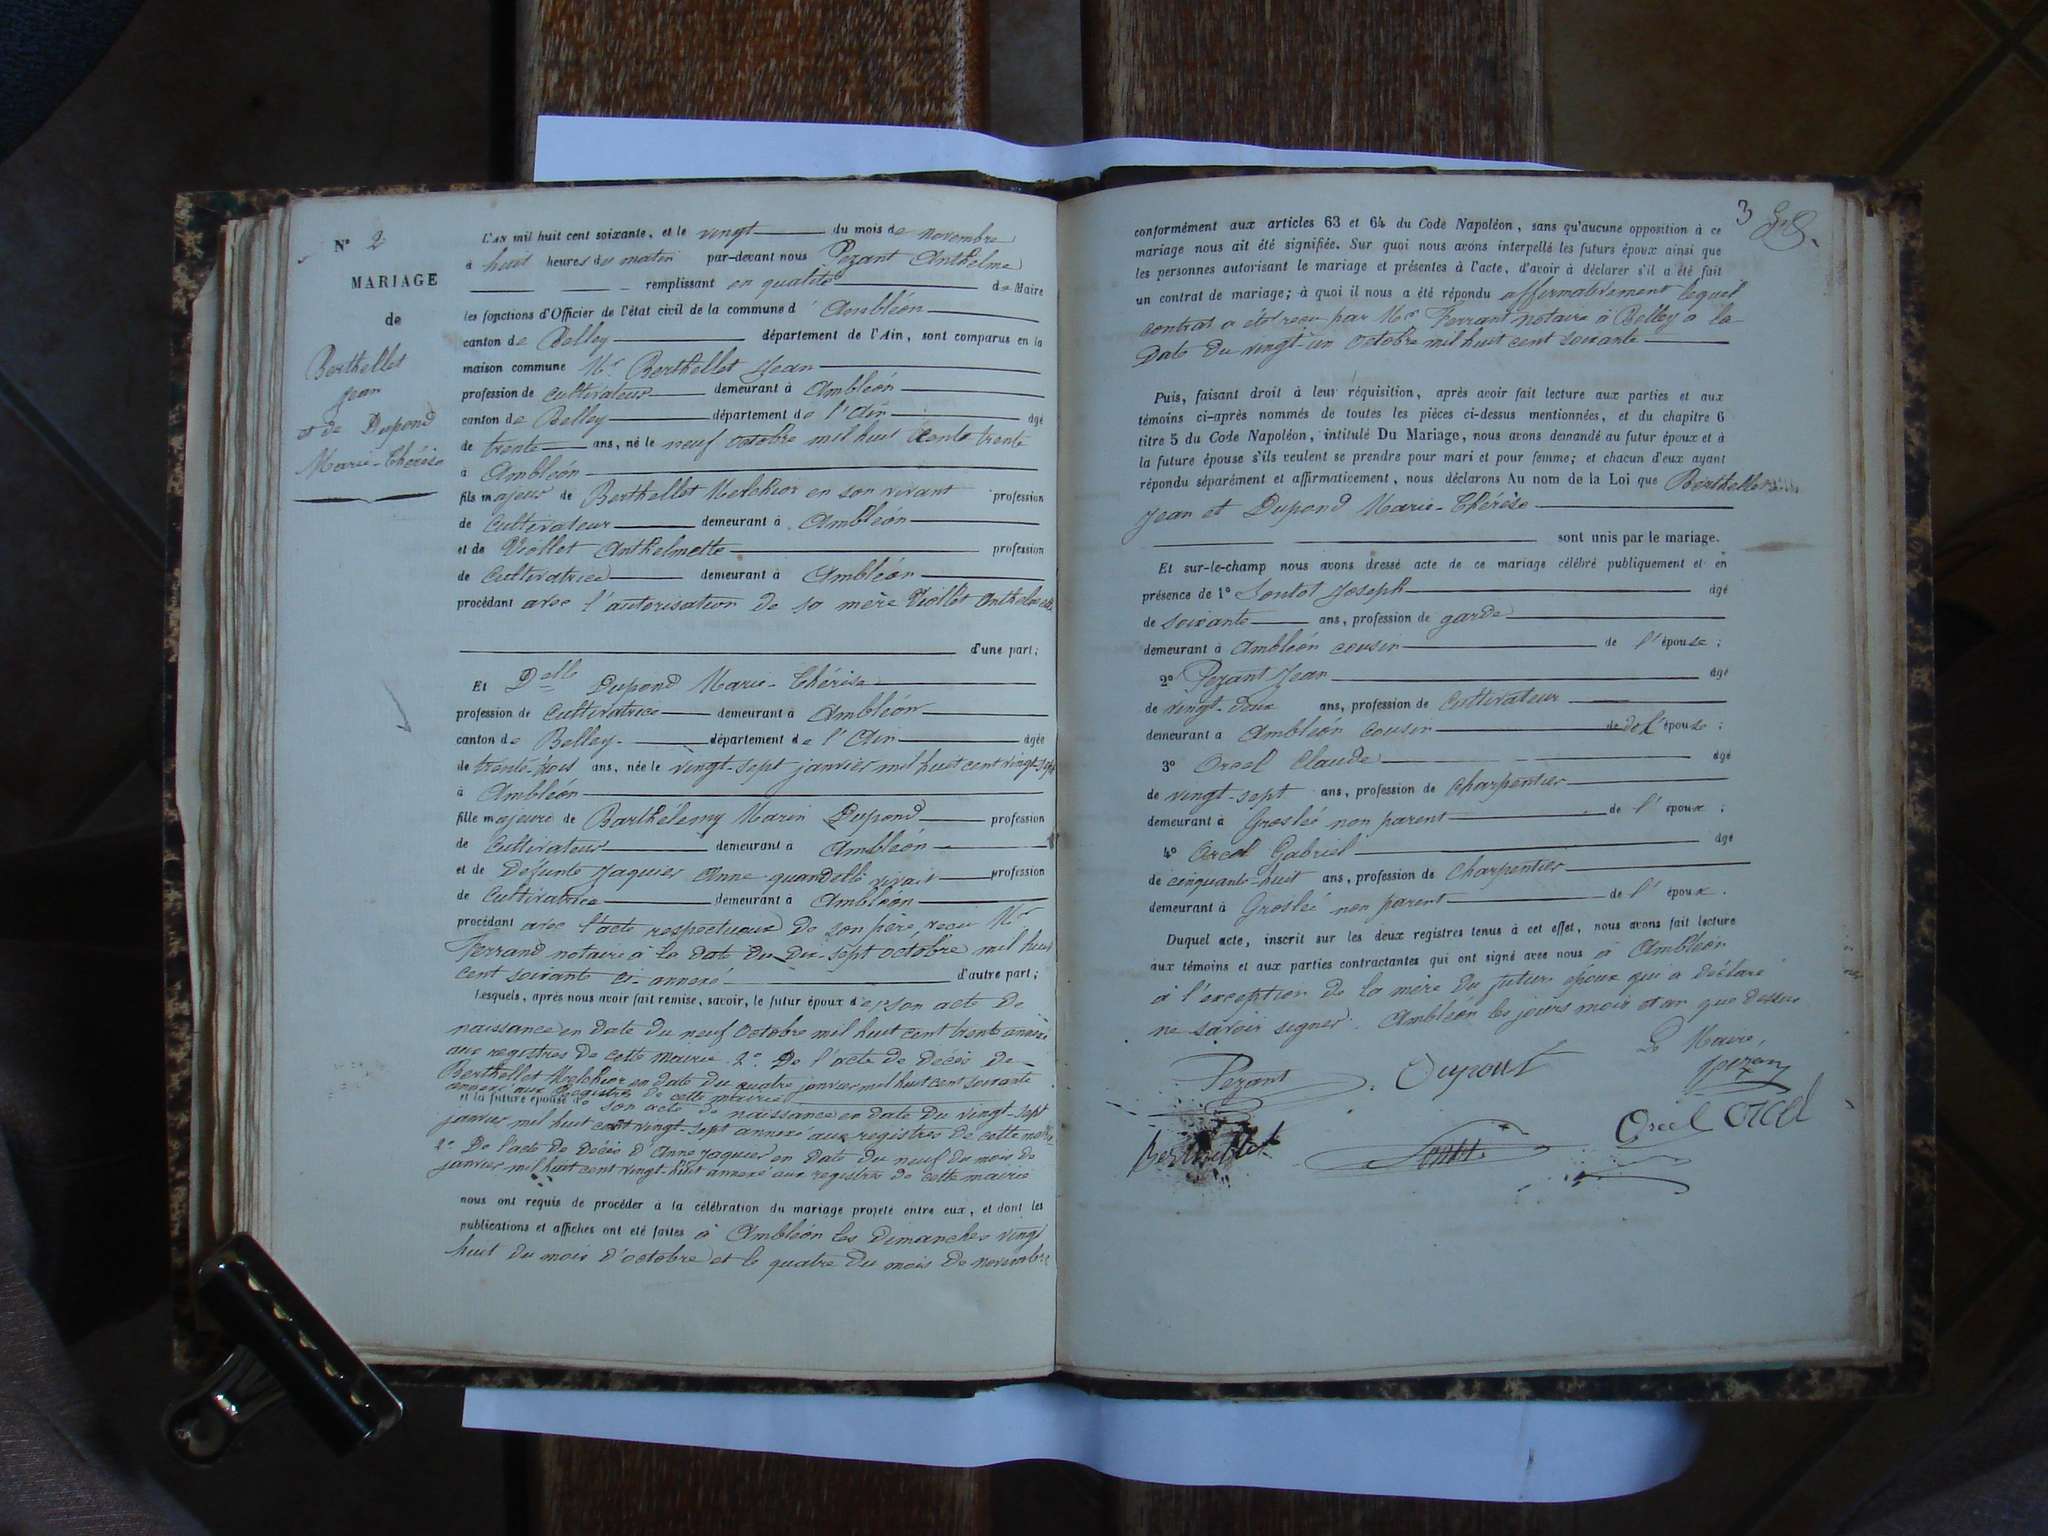 N° 2
MARIAGE
de
Berthellet
Jean
et de Dupond
Marie-Thérèse
L'AN mil huit cent soixante, et le vingt du mois de novembre
à huit heures du matin par-devant nous Pezant Anthelme
remplissant en qualité de Maire
les fonctions d'Officier de l'état civil de la commune d'Ambléon
canton de Belley département de l'Ain, sont comparus en la
maison commune Mr Berthellet Jean
profession de cultivateur demeurant à Ambléon
canton de Belley département de l'Ain âgé
de trente ans, né le neuf octobre mil huit cent trente
à Ambléon
fils majeur de Berthellet Melchior en son vivant profession
de cultivateur demeurant à Ambléon
et de Viollet Anthelmette profession
de cultivatrice demeurant à Ambléon
procédant avec l'autorisation de sa mère Viollet Anthelmette
d'une part;
Et Delle Dupond Marie-Thérèse
profession de cultivatrice demeurant à Ambléon
canton de Belley département de l'Ain âgée
de trente-trois ans, née le vingt-sept janvier mil huit cent vingt-sept
à Ambléon
fille majeure de Barthélemy Marin Dupond profession
de cultivateur demeurant à Ambléon
et de Défunte Jaquier Anne quand elle vivait profession
de cultivatrice demeurant à Ambléon
procédant avec l'acte respectueux de son père, reçu Mr
Ferrand notaire à la date du Dix-sept octobre mil huit
cent soixante ci-annexé d'autre part;
Lesquels, après nous avoir fait remise, savoir, le futur époux d son acte de
naissance en date du neuf octobre mil huit cent trente annexé
aux registres de cette mairie 2° De l'acte de Décès de
Berthellet Melchior en date du quatre janvier mil huit cent soixante
annexé aux Registres de cette mairie
et la future épouse de son acte de naissance en date du vingt-sept
janvier mil huit cent vingt-sept annexé aux registres de cette mairie
2° De l'acte de Décès d'Anne Jaquier en date du neuf du mois de
janvier mil huit cent vingt-huit annexé aux registres de cette mairie
nous ont requis de procéder à la célébration du mariage projeté entre eux, et dont les
publications et affiches ont été faites à Ambléon les Dimanches vingt
huit du mois d'octobre et le quatre du mois de novembre
3
conformément aux articles 63 et 64 du Code Napoléon, sans qu'aucune opposition à ce
mariage nous ait été signifiée. Sur quoi nous avons interpellé les futurs époux ainsi que
les personnes autorisant le mariage et présentes à l'acte, d'avoir à déclarer s'il a été fait
un contrat de mariage; à quoi il nous a été répondu affirmativement lequel
contrat a été reçu par Mr Ferrant notaire à Belley à la
Date du vingt-un octobre mil huit cent soixante
Puis, faisant droit à leur réquisition, après avoir fait lecture aux parties et aux
témoins ci-après nommés de toutes les pièces ci-dessus mentionnées, et du chapitre 6
titre 5 du Code Napoléon, intitulé Du Mariage, nous avons demandé au futur époux et à
la future épouse s'ils veulent se prendre pour mari et pour femme; et chacun d'eux ayant
répondu séparément et affirmativement, nous déclarons Au nom de la Loi que Berthellet
Jean et Dupond Marie-Thérèse
sont unis par le mariage.
Et sur-le-champ nous avons dressé acte de ce mariage célébré publiquement et en
présence de 1° Joseph âgé
de soixante ans, profession de garde
demeurant à Ambléon cousin de l'épouse;
2° Pezant Jean âgé
de vingt-deux ans, profession de cultivateur
demeurant à Ambléon cousin de de l'épouse;
3° Orcel Claude âgé
de vingt-sept ans, profession de charpentier
demeurant à Groslée non parent de l'époux;
4° Orcel Gabriel âgé
de cinquante-huit ans, profession de charpentier
demeurant à Groslée non parent de l'époux.
Duquel acte, inscrit sur les deux registres tenus à cet effet, nous avons fait lecture
aux témoins et aux parties contractantes qui ont signé avec nous à Ambléon
à l'exception de la mère du futur époux qui a déclaré
ne savoir signer. Ambléon les jours mois et an que dessus
Le Maire,
Pezant Dupont
Orcel Orcel
Berthellet